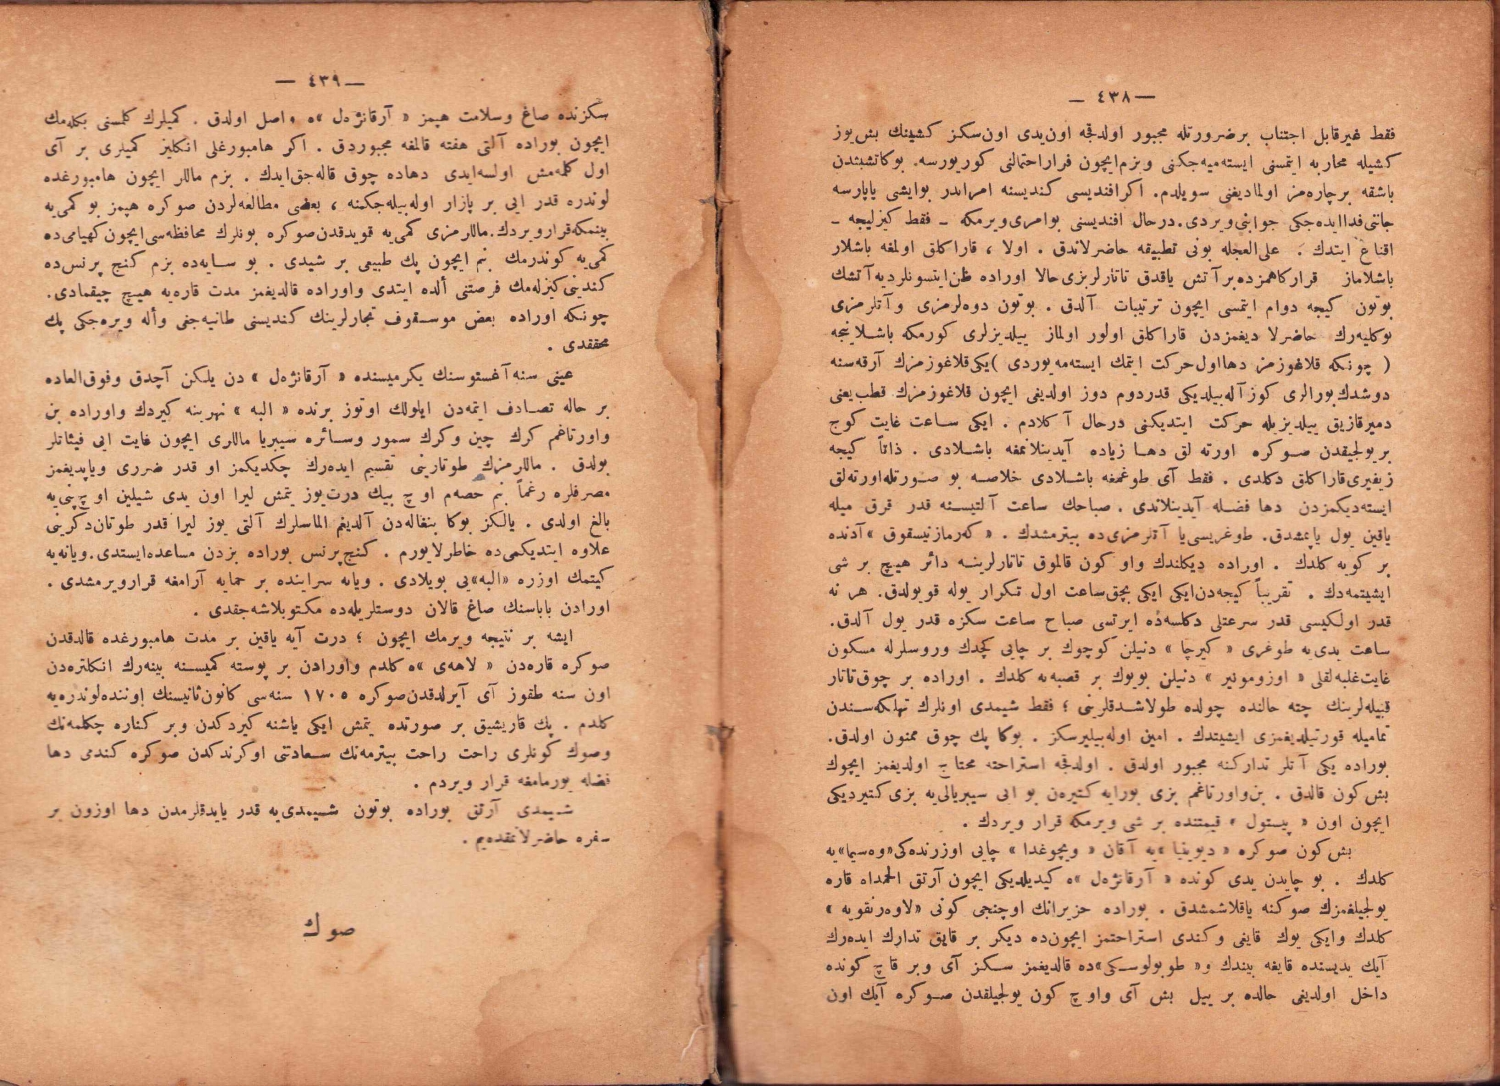 — ٤٣٨ —
فقط غیرقابل اجتناب برضرورتله مجبور اولدقجه اون‌یدی اون‌سکز کشینك بش‌یوز
کشیله محاربه ایتمسنی ایسته‌میه‌جکنی وبزم‌ایچون فراراحتمالنی کوریورسه. بوکاتشبثدن
باشقه برچاره‌مز اولمادیغنی سویلدم. اکرافندیسی کندیسنه امرایدر بوایشی یاپارسه
جاننی‌فداایده‌جکی جوابنی‌ویردی.درحال افندیسنی بوامری‌ویرمکه ـ فقط کیزلیجه ـ
اقناع ایتدك . علی‌العجله بونی تطبیقه حاضرلاندق . اولا ، قاراکلق اولمغه باشلار
باشلاماز قرارکاهمزده‌برآتش یاقدق تاتارلربزی‌حالا اوراده ظن‌ایتسونلردیه‌آتشك
بوتون کیجه دوام ایتمسی ایچون ترتیبات آلدق . بوتون دوه‌لرمزی وآتلرمزی
یوکلیه‌رك حاضرلا دیغمزدن قاراکلق اولور اولماز ییلدیزلری کورمکه باشلاینجه
( چونکه قلاغوزمز دهااول‌حرکت ایتمك ایسته‌مه‌یوردی )یکی‌قلاغوزمزك آرقه‌سنه
دوشدك‌بورالری کوز آله‌بیلدیکی قدردوم دوز اولدیغی ایچون قلاغوزمزك قطب‌یعنی
دمیرقازیق ییلدیزیله حرکت ایتدیکنی درحال آکلادم . ایکی ساعت غایت کوج
بریولجیقدن صوکره اورته لق دها زیاده آیدینلانمغه باشلادی . ذاتاً کیجه
زیفیری‌قاراکلق دکلدی . فقط آی طوغمغه باشلادی خلاصه بو صورتله‌اورته‌لق
ایسته‌دیکمزدن دها فضله آیدینلاندی . صباحك ساعت آلتیسنه قدر قرق میله
یاقین یول یاپمشدق. طوغریسی‌یا آتلرمزی‌ده بیترمشدك . « که‌رمازنیسقوق »آدنده
بر کویه کلدك . اوراده دیکلندك واو کون قالموق تاتارلرینه دائر هیچ بر شی
ایشیتمه‌دك . تقریباً کیجه‌دن‌ایکی ایکی بچق‌ساعت اول تکرار یوله قویولدق. هر نه
قدر اولکیسی قدر سرعتلی دکلسه‌ده ایرتسی صباح ساعت سکزه قدر یول آلدق.
ساعت یدی‌یه طوغری « کیرچا » دنیلن کوچوك بر چایی کچدك وروسلرله مسکون
غایت‌غلبه‌لقلی « اوزومونیر » دنیلن بویوك بر قصبه‌یه کلدك . اوراده بر چوق‌تاتار
قبیله‌لرینك چته حالنده چولده طولاشدقلرینی ؛ فقط شیمدی اونلرك تهلکه‌سندن
تمامیله قورتیلدیغمزی ایشیتدك . امین اوله‌بیلیرسکز . بوکا پك چوق ممنون اولدق.
بوراده یکی آتلر تدارکنه مجبور اولدق . اولدقجه استراحته محتاج اولدیغمز ایچوك
بش‌کون قالدق . بن‌واورتاغم بزی بورایه کتیره‌ن بو ایی سیبریالی‌یه بزی‌کتیردیکی
ایچون اون « پیستول » قیمتنده بر شی ویرمکه قرار ویردك .
بش‌کون صوکره « دیوینیا »یه آقان « ویچوغدا » چایی اوزرنده‌کی«وه‌سیما»یه
کلدك . بو چایدن یدی کونده « آرقانژه‌ل »ه کیدیلدیکی ایچون آرتق الحمداه قاره
یولجیلغمزك صوکنه یاقلاشمشدق . بوراده حزیرانك اوچنجی کونی «لاوه‌رنقویه »
کلدك وایکی یوك قایغی وکندی استراحتمز ایچون‌ده دیکر بر قایق تدارك ایده‌رك
آیك یدیسنده قایغه بیندك و« طوبولوسکی»ده قالدیغمز سکز آی وبر قاچ کونده
داخل اولدیغی حالده بر ییل بش آی واوچ کون یولجیلقدن صوکره آیك اون
— ٤٣٩ —
سکزنده صاغ وسلامت هپمز « آرقانژه‌ل »ه واصل اولدق . کمیلرك کلمسنی بکله‌مك
ایچون بوراده آلتی هفته قالمغه مجبوردق . اکر هامبورغلی انکلیز کمیلری بر آی
اول کلمه‌مش اولسه‌ایدی دهاده چوق قاله‌جق‌ایدك . بزم ماللر ایچون هامبورغده
لوندره قدر ایی بر پازار اوله‌بیله‌جکنه ، بعضی مطالعه‌لردن صوکره هپمز بو کمی‌یه
بینمکه‌قرارویردك.ماللرمزی کمی‌یه قویدقدن‌صوکره بونلرك محافظه‌سی‌ایچون‌کهیامی‌ده
کمی‌یه کوندرمك بنم ایچون پك طبیعی بر شیدی . بو سایه‌ده بزم کنج پرنس‌ده
کندینی‌کیزله‌مك فرصتنی ألده ایتدی واوراده قالدیغمز مدت قاره‌یه هیچ چیقمادی.
چونکه اوراده بعض موسقوف تجارلرینك کندیسنی طانیه‌جغی وأله ویره‌جکی پك
محققدی .
عینی سنه‌آغستوسنك یکرمیسنده « آرقانژه‌ل » دن یلکن آچدق وفوق‌العاده
بر حاله تصادف ایتمه‌دن ایلولك اوتوز برنده « البه » نهرینه کیردك واوراده بن
واورتاغم کرك چین وکرك سمور وسائره سیبریا ماللری ایچون غایت ایی فیئاتلر
بولدق . ماللرمزك طوتارینی تقسیم ایده‌رك چکدیکمز او قدر ضرری ویاپدیغمز
مصرفلره رغماً بنم حصه‌م اوچ بیك درت‌یوز یتمش لیرا اون یدی شیلین اوچ‌پنی‌یه
بالغ اولدی . یالکز بوکا بنغاله‌دن آلدیغم الماسلرك آلتی یوز لیرا قدر طوتان‌دکرینی
علاوه ایتدیکمی‌ده خاطرلایورم . کنج‌پرنس بوراده بزدن مساعده‌ایستدی.ویانه‌یه
کیتمك اوزره «البه»یی بویلادی . ویانه سراینده بر حمایه آرامغه قرارویرمشدی .
اورادن باباسنك صاغ قالان دوستلریله‌ده مکتوبلاشه‌جقدی .
ایشه بر نتیجه ویرمك ایچون ؛ درت آیه یاقین بر مدت هامبورغده قالدقدن
صوکره قاره‌دن « لاهه‌ی »ه کلدم واورادن بر پوسته کمیسنه بینه‌رك انکلتره‌دن
اون سنه طقوز آی آیرلدقدن‌صوکره ١٧٠٥ سنه‌سی کانون‌ثانیسنك اوننده‌لوندره‌یه
کلدم . پك قاریشیق بر صورتده یتمش ایکی یاشنه کیردکدن وبر کناره چکلمه‌نك
وصوك کونلری راحت راحت بیترمه‌نك سعادتنی اوکرندکدن صوکره کندمی دها
فضله یورمامغه قرار ویردم .
شیمدی آرتق بوراده بوتون شیمدی‌یه قدر یاپدقلرمدن دها اوزون بر
سفره حاضرلانمقده‌یم .
صوك